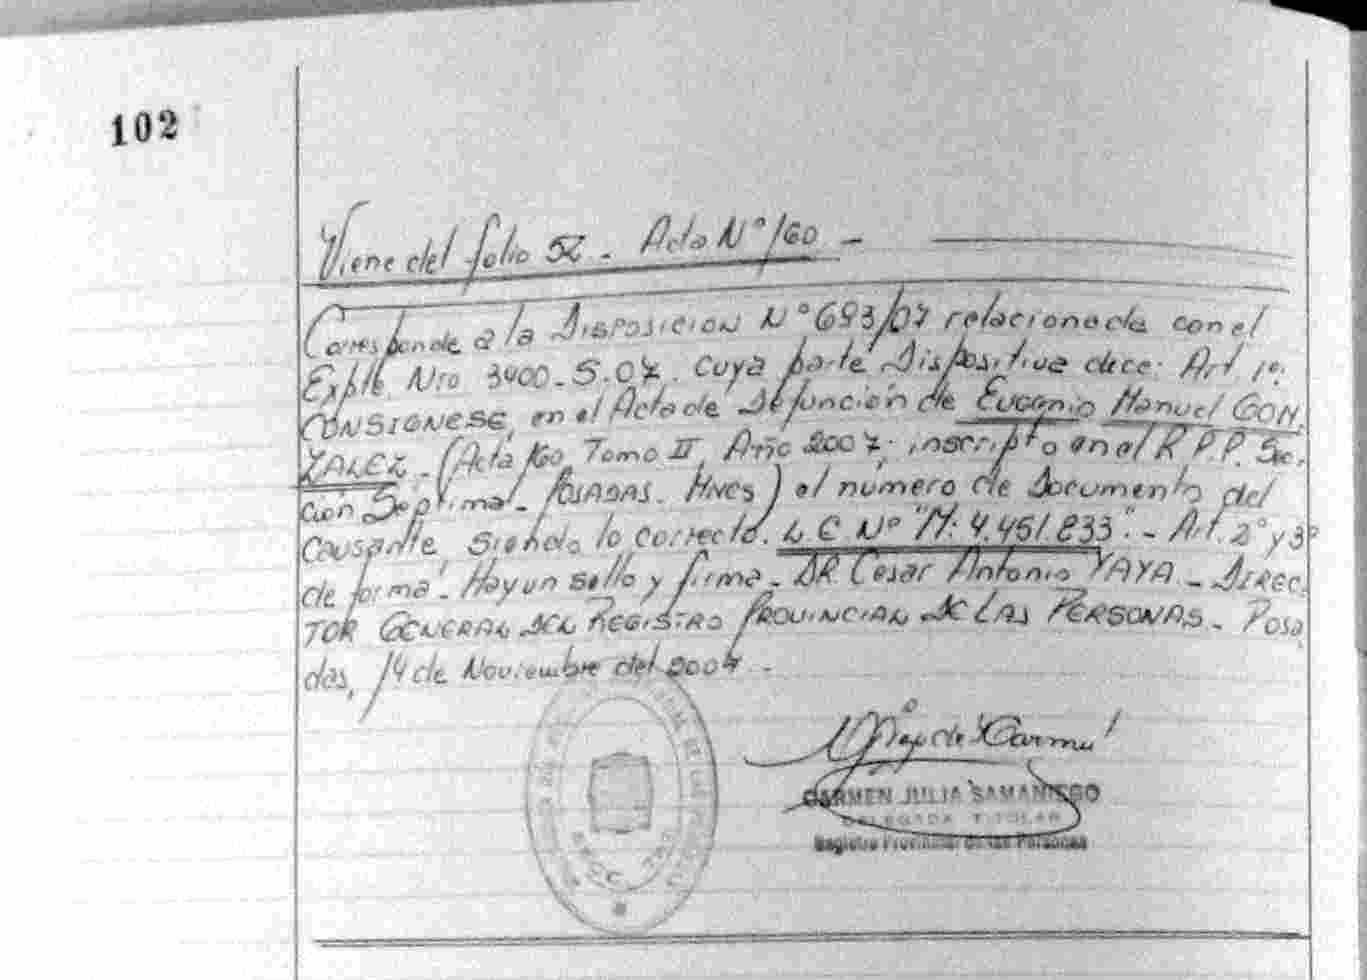 102
Viene del folio 52 - Acta Nº 160 -
Corresponde a la DISPOSICION Nº 693/07 relacionada con el
Expte. Nro 3400-S-07. cuya parte Dispositiva dice: Art. 1º:
CONSIGNESE, en el Acta de Defunción de Eugenio Manuel GON
ZALEZ - (Acta 160, Tomo II, Año 2007, inscripto en el R.P.P. Sec.
ción Séptima - POSADAS. Mnes) el número de Documento del
Causante, siendo lo correcto. L.C Nº "M. 4.451.833". - Art. 2º y 3º
de forma. Hay un sello y firma - DR Cesar Antonio YAYA - DIREC
TOR GENERAL DEL REGISTRO PROVINCIAL DE LAS PERSONAS - Posa
das, 14 de Noviembre del 2007 -
CARMEN JULIA SAMANIEGO
DELEGADA TITULAR
Registro Provincial de las Personas